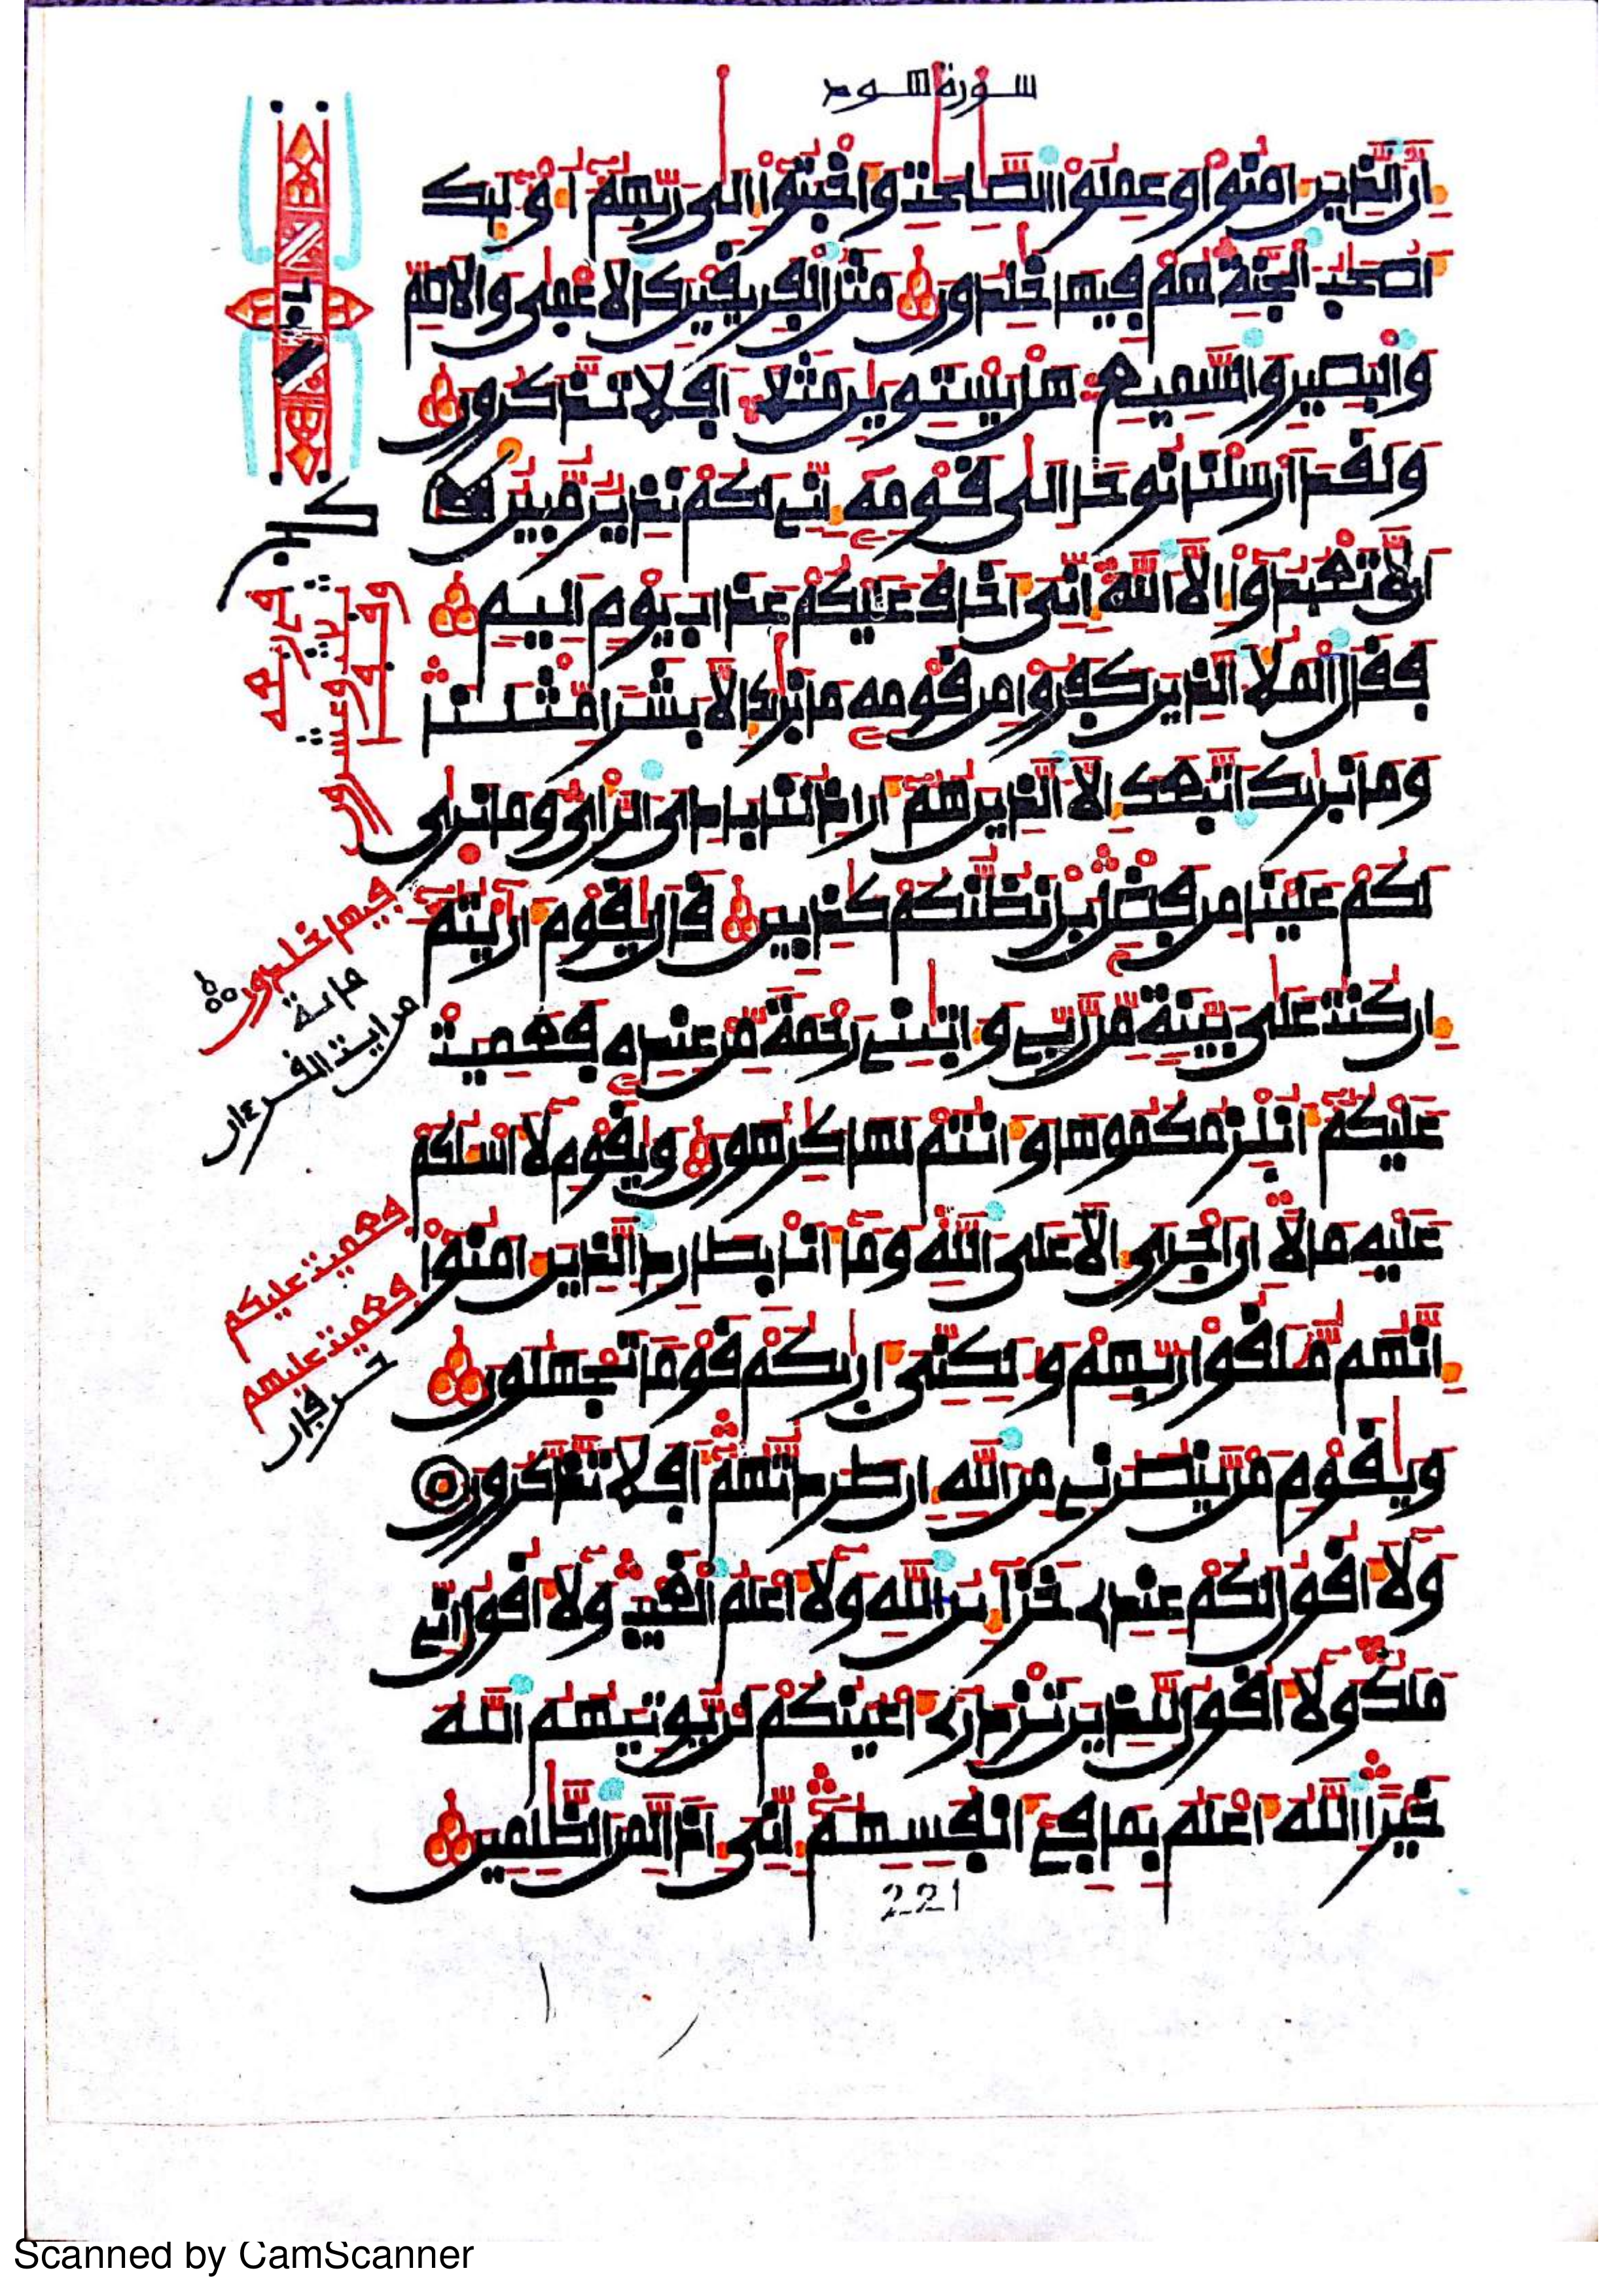 سورة هود
إن الذين ءامنوا وعملوا الصلحت وأخبتوا إلى ربهم أولئك
أصحب الجنة هم فيها خلدون مثل الفريقين كالأعمى والأصم
والبصير والسميع هل يستوين مثلا أفلا تذكرون
ولقد أرسلنا نوحا إلى قومه إني لكم نذير مبين
أن لا تعبدوا إلا الله إني أخاف عليكم عذاب يوم أليم
فقال الملأ الذين كفروا من قومه ما نريك إلا بشرا مثلنا
وما نريك اتبعك إلا الذين هم أراذلنا بادي الرأي وما نرى
لكم علينا من فضل بل نظنكم كذبين قال يقوم أريتم
إن كنت على بينة من ربي وءاتيني رحمة من عنده فعميت
عليكم أنلزمكموها وأنتم لها كرهون ويقوم لا أسلكم
عليه مالا إن أجري إلا على الله وما أنا بطارد الذين ءامنوا
إنهم ملقوا ربهم ولكني أريكم قوما تجهلون
ويقوم من ينصرني من الله إن طردتهم أفلا تذكرون
ولا أقول لكم عندي خزائن الله ولا أعلم الغيب ولا أقول إني
ملك ولا أقول للذين تزدري أعينكم لن يوتيهم الله
خيرا الله أعلم بما في أنفسهم إني إذا لمن الظلمين
221
فيها خلدون
مائة
من ايت القرءان
فعميت عليكم
فعميت عليهم
حرفان
Scanned by CamScanner